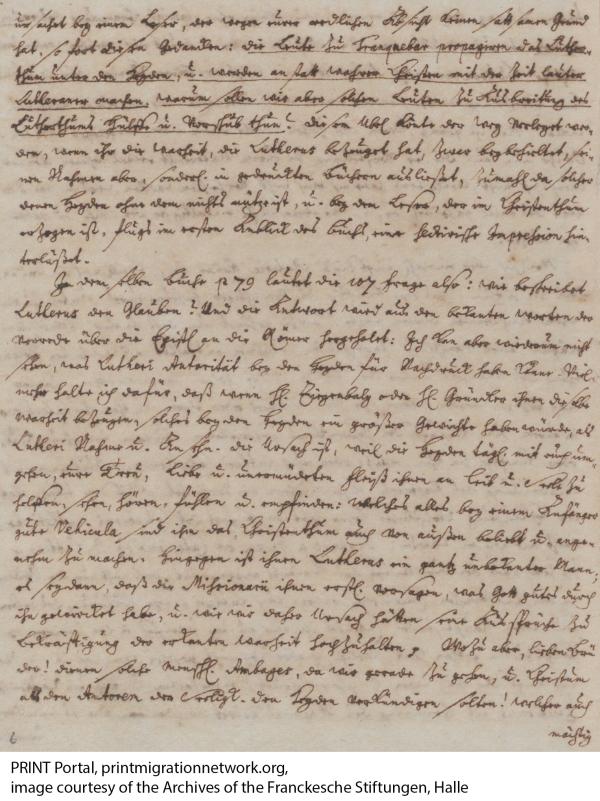 ursachet bey einem Leser, der wegen eurer redlichen Absicht keinen sattsamen Grund
hat, so fort diesen Gedancken: die Leute zu Tranquebar propagiren das Luther-
thum unter den Heyden, u. werden an statt wahrer Christen mit der Zeit lauter
Lutheraner machen, warum sollen wir aber solchen Leuten zu Ausbreitung des
Lutherthums Hülffe u. Vorschub thun? diesem Übel könte der Weg verleget wer-
den, wenn ihr die Warheit, die Lutherus bezeuget hat, zwar beybehieltet, sei-
nen Nahmen aber, sonderl. in gedruckten Büchern ausließet, zumahl da solcher
denen Heyden ohne dem nichts nütze ist, u. bey dem Leser, der im Christenthum
erzogen ist, flugs im ersten Anblick des Buchs, eine sectirische Impression hin-
terläßet.
In dem selben Buche p 79 lautet die 107 Frage also: wie beschreibet
Lutherus den Glauben? Und die Antwort wird aus den bekanten Worten der
Vorrede über die Epistel an die Römer hergeholet: Ich kan aber wiederum nicht
sehen, was Lutheri Autorität bey den Heyden für Nachdruck haben könne. Viel-
mehr halte ich dafür, daß wenn H. Ziegenbalg oder H. Gründler ihnen dieselbe
Warheit bezeugen, solches bey den Heyden ein größer Gewichte haben würde, als
Lutheri Nahme u. Die Ursach ist, weil die Heyden tägl. mit euch um-
gehen, eure Treu, Liebe u. unermüdeten Fleiß ihnen an Leib u. Seele zu
helffen, sehen, hören, fühlen u. empfinden: welches alles bey einem Anfänger
gute Vehicula sind ihm das Christenthum auch von außen beliebt u. ange-
nehm zu machen. Hingegen ist ihnen Lutherus ein gantz unbekanter Mann,
es sey dann, daß die Missionarii ihnen erstl. vorsagen, was Gott gutes durch
ihn gewircket habe, u. wie wir daher Ursach hätten seine Aussprüche zu
Bekräftigung der erkanten Warheit hochzuhalten. Wozu aber, lieben Brü-
der! dienen solche menschl. Ambages, da wir gerade zu gehen, u. Christum
als den Autorem der Seeligk. den Heyden verkündigen solten! welcher auch
mächtig
6
PRINT Portal, printmigrationnetwork.org,
image courtesy of the Archives of the Franckesche Stiftungen, Halle